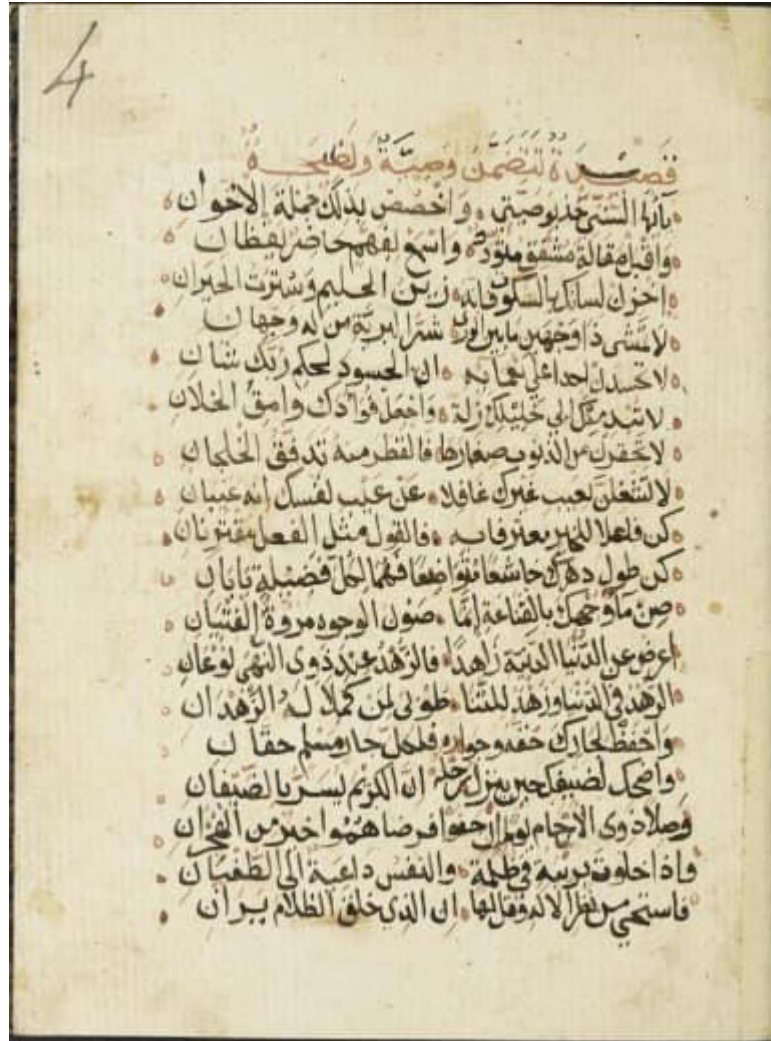 4
قصيدة تتضمن وصية ونصيحة
يا أيها السني خذ بوصيتي واخصص بذلك جملة الاخوان
واقبل مقالة مشفق متودد واسمع بفهم حاضر يقظان
اخزن لسانك بالسكوت فانه زين الحليم وسترت الحيران
لا تمشي ذا وجهين ما بين الورى شر البرية من له وجهان
لا تحسدن احدا على نعمايه ان الحسود لحكم ربك شان
لا تبد منك الى خليلك زلة واجعل فوادك وامق الخلان
لا تحقرن من الذنوب صغارها فالقطر منه تدفق الخلجان
لا تشتغلن بعيب غيرك غافلا عن عيب نفسك انه عيبان
كن فاعلا للخير معترفا به فالقول مثل الفعل مقترنان
كن طول دهرك خاشعا متواضعا فهما لكل فضيلة بابان
صن ماء وجهك بالقناعة انما صون الوجوه مروة الفتيان
اعرض عن الدنيا الدنية زاهدا فالزهد عند ذوي النهى نوعان
الزهد في الدنيا وزهد للثنا طوبى لمن كملا له الزهدان
واحفظ لجارك حقه وجواره فلكل جار مسلم حقان
واضحك لضيفك حين ينزل رحله ان الكريم يسر بالضيفان
وصلا ذوي الارحام لو ان جفوا فرضاهموا خير من الهجران
واذا خلوت بريبة في ظلمة والنفس داعية الى الطغيان
فاستحي من نظر الاله وقل لها ان الذي خلق الظلام يراني